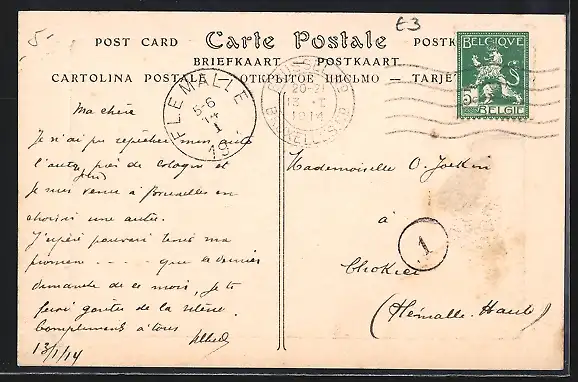 5-
E3
POST CARD Carte Postale POSTK
BRIEFKAART — POSTKAART
CARTOLINA POSTALE — ОТКРЫТОЕ ПИСЬМО — TARJET
BELGIQUE
5
BELGIË
FLEMALLE
5-6
14
1
19
20-21
13 I
1914
Ma chère
Je n'ai pu repêcher mon
l'autre près de Cologne et
je suis venu à Bruxelles en
choisir une autre.
J'espère pouvoir tenir ma
promesse - - - - que le dernier
dimanche de ce mois, je te
ferai goûter de la
Compliments à tous
13/1/14
Mademoiselle O.
à
Chokier
(Flémalle-Haute)
1